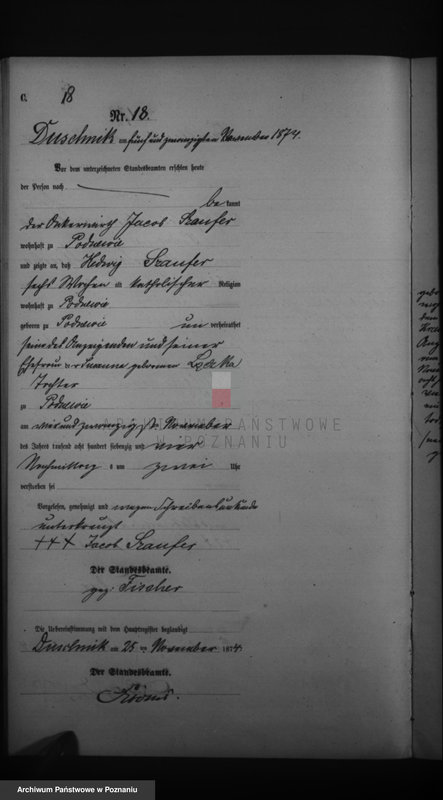 C. 18
Nr. 18.
Duschnik am fünf und zwanzigsten November 1874.
Vor dem unterzeichneten Standesbeamten erschien heute
der Person nach
be kannt
der Ackerwirth Jacob Szaufer
wohnhaft zu Podrzewie
und zeigte an, daß Hedwig Szaufer
sechs Wochen alt katholischer Religion
wohnhaft zu Podrzewie
geboren zu Podrzewie un verheirathet
seine des Anzeigenden und seiner
Ehefrau Marianne geborenen
Tochter
zu Podrzewie
am vier und zwanzigsten November
des Jahres tausend acht hundert siebenzig und vier
Nachmittags um zwei Uhr
verstorben sei
Vorgelesen, genehmigt und wegen Schreibensunkunde
unterkreuzt
+++ Jacob Szaufer
Der Standesbeamte.
gez. Fischer
Die Uebereinstimmung mit dem Hauptregister beglaubigt
Duschnik am 25 ten November 1874.
Der Standesbeamte.
ARCHIWUM PAŃSTWOWE
W POZNANIU
Archiwum Państwowe w Poznaniu